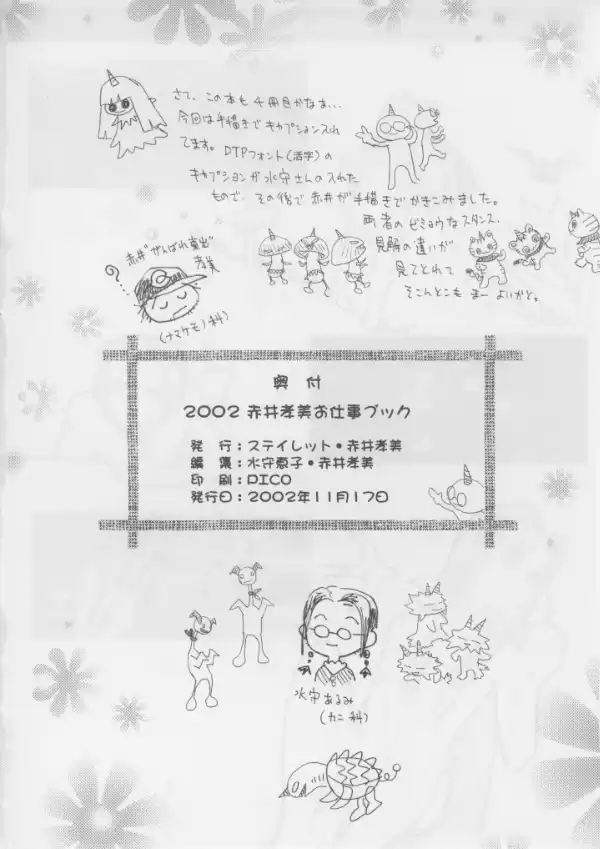 さて、この本も4冊目かなぁ...
今回は手描きでキャプション入れ
てます。DTPフォント(活字)の
キャプションが水守さんの入れた
もので、その後で赤井が手描きでかきこみました。
両者のビミョウなスタンス、
見解の違いが
見てとれて
そこんとこも まーよいかと。
赤井"がんばれ東出"
孝美
?
(ナマケモノ科)
奥 付
2002 赤井孝美お仕事ブック
発 行:ステイレット・赤井孝美
編 集:水守惠子・赤井孝美
印 刷:PICO
発行日:2002年11月17日
水守あるみ
(カニ科)